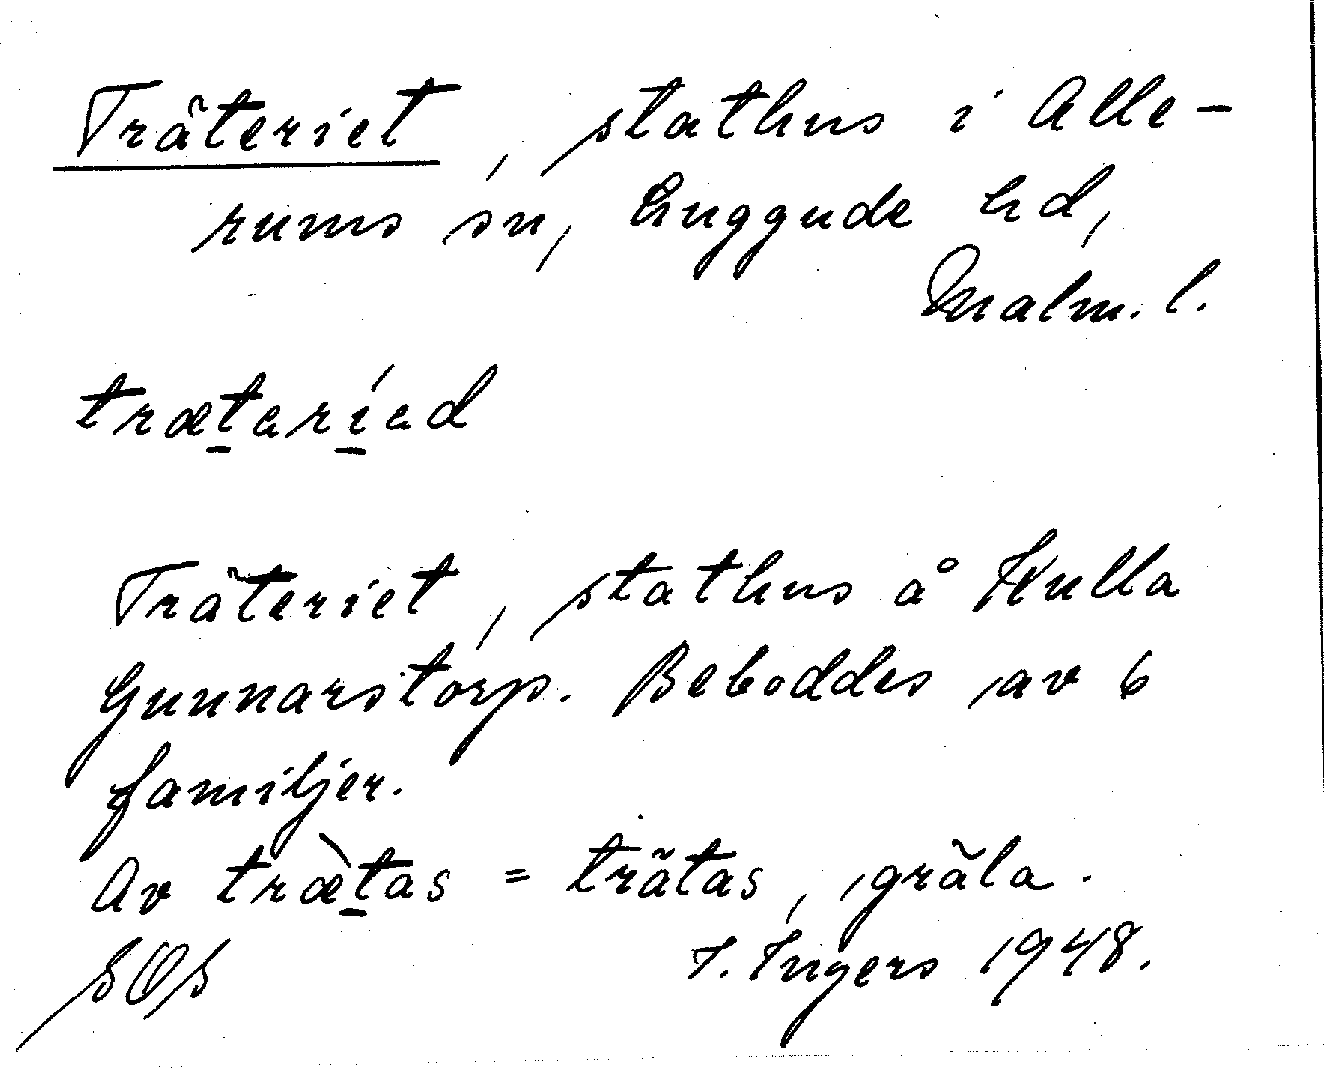 Träteriet, stathus i Alle-
rums sn, Luggude hd,
Malm. l.
trætaríad
Träteriet, stathus å Kulla
Gunnarstorp. Beboddes av 6
familjer.
Av træ̀tas = trätas, gräla.
SOS I. Ingers 1948.